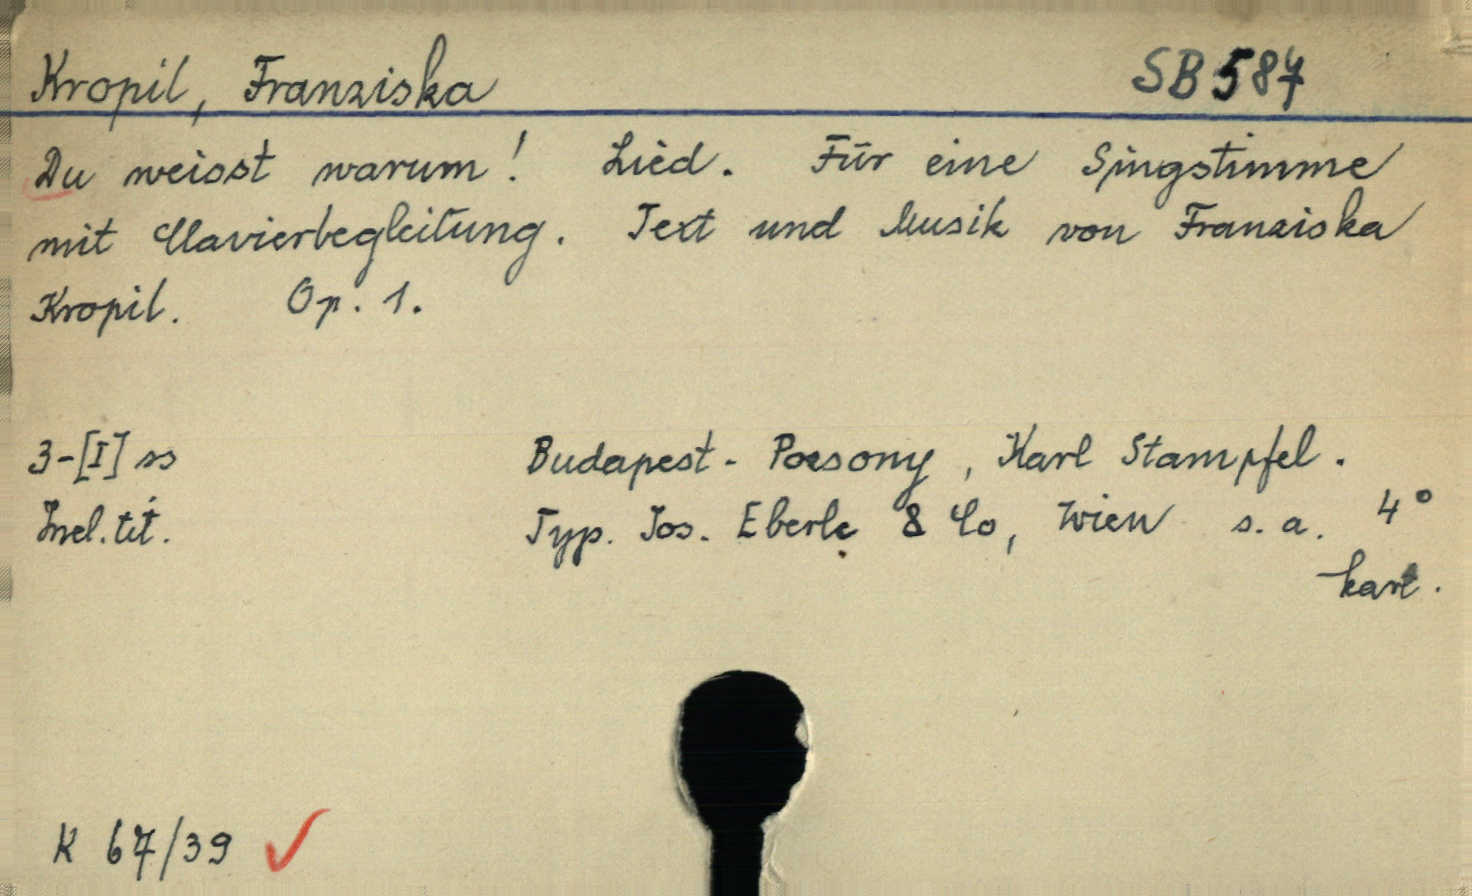 Kropil, Franziska SB 587
Du weisst warum! Lied. Für eine Singstimme
mit Clavierbegleitung. Text und Musik von Franziska
Kropil. Op. 1.
3-[I] ss Budapest - Pozsony, Karl Stampfel.
Incl. tit. Typ. Jos. Eberle & Co, Wien s. a. 4°
kart.
K 67/39